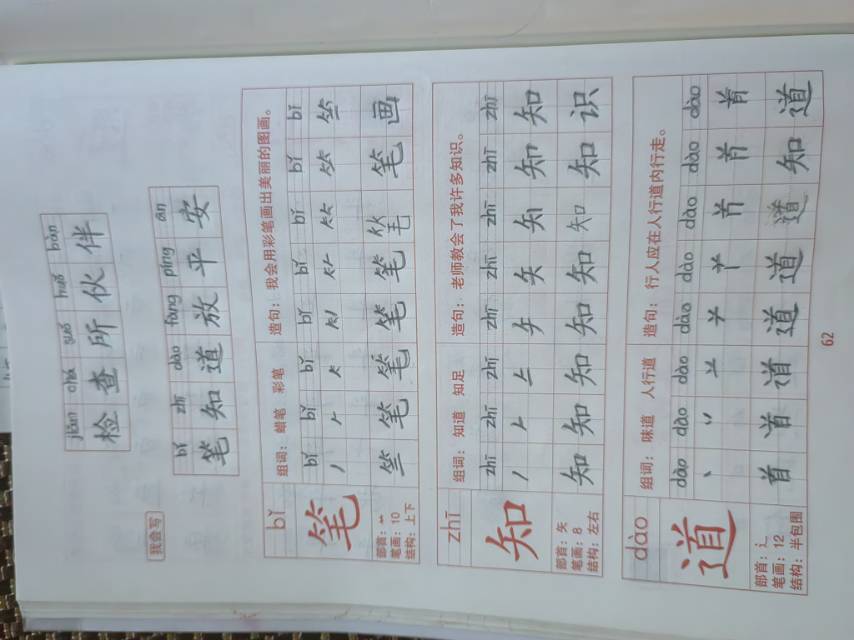 jiǎn chá suǒ huǒ bàn
检查所伙伴
我会写
bǐ zhī dào fàng píng ān
笔知道放平安
bǐ 组词：蜡笔 彩笔 造句：我会用彩笔画出美丽的图画。
bǐ bǐ bǐ bǐ bǐ bǐ bǐ bǐ
笔
部首：⺮
笔画：10
结构：上下
竺 笔 笔 笔 笔 笔 笔 画
zhī 组词：知道 知足 造句：老师教会了我许多知识。
zhī zhī zhī zhī zhī zhī zhī zhī
知
部首：矢
笔画：8
结构：左右
知 知 知 知 知 知 知 识
dào 组词：味道 人行道 造句：行人应在人行道内行走。
dào dào dào dào dào dào dào dào
道
部首：辶
笔画：12
结构：半包围
首 道 道 道 道 道 知 道
62